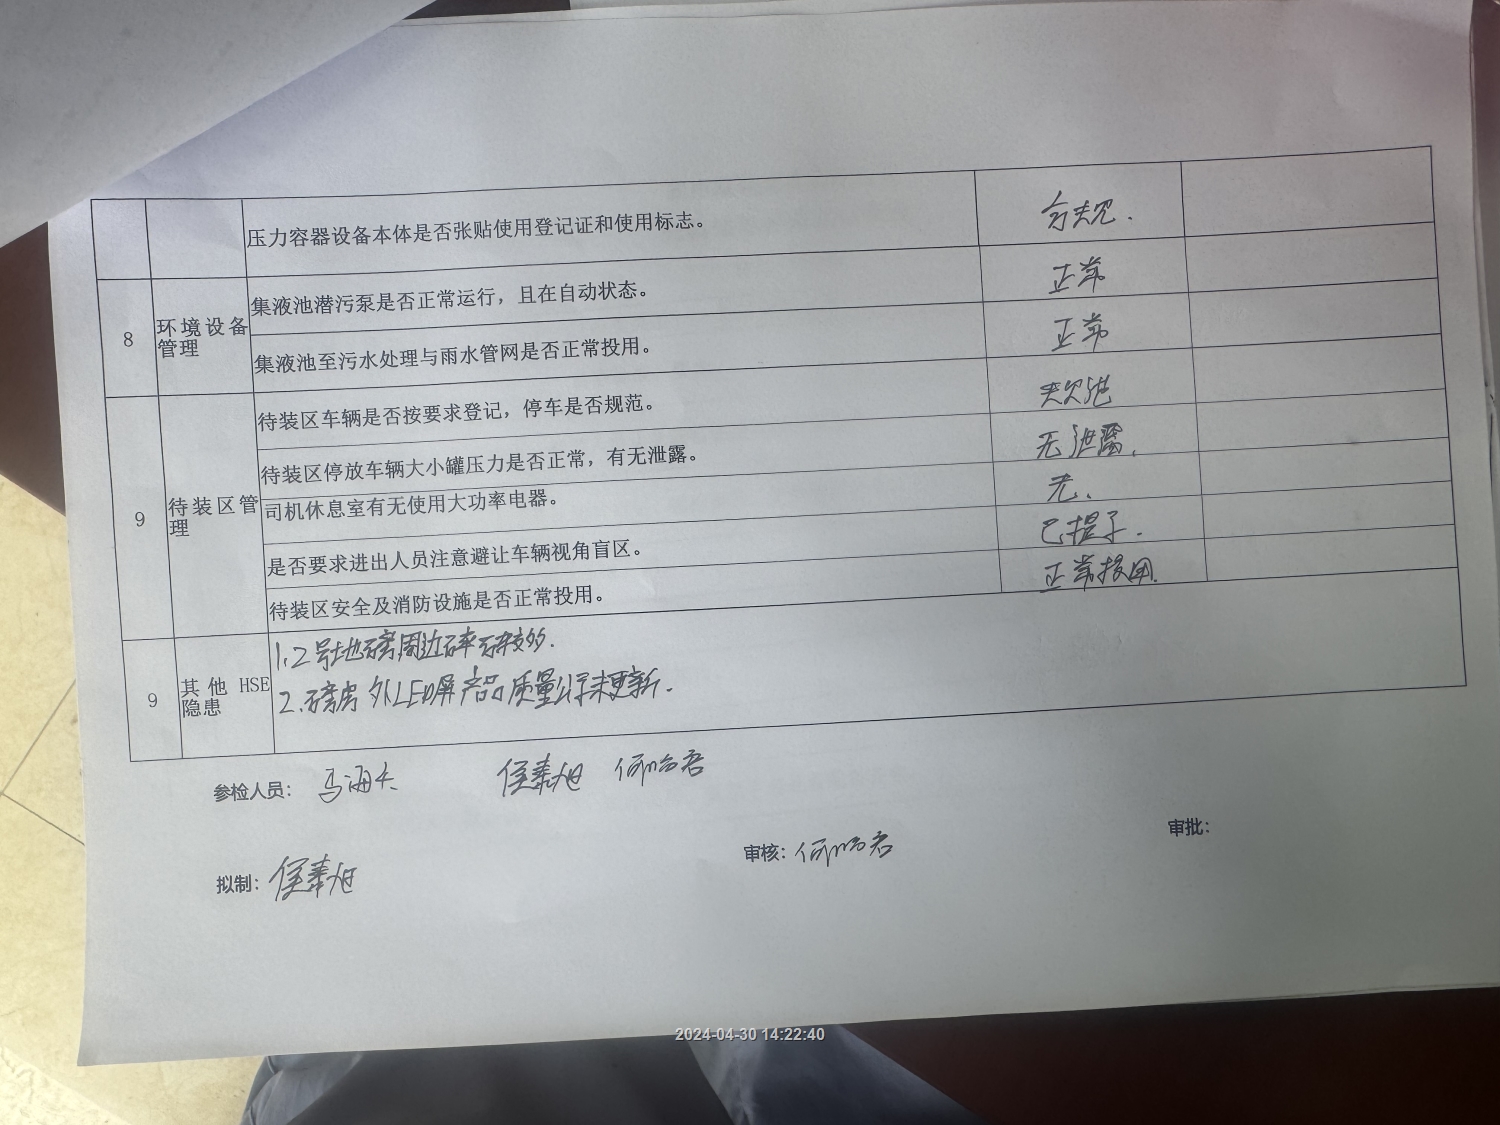 压力容器设备本体是否张贴使用登记证和使用标志。
8 环境设备管理
集液池潜污泵是否正常运行，且在自动状态。 正常
集液池至污水处理与雨水管网是否正常投用。 正常
9 待装区管理
待装区车辆是否按要求登记，停车是否规范。
待装区停放车辆大小罐压力是否正常，有无泄露。 无泄露.
司机休息室有无使用大功率电器。 无.
是否要求进出人员注意避让车辆视角盲区。 已提示.
待装区安全及消防设施是否正常投用。 正常投用.
9 其他 HSE 隐患
1、2号地磅周边碎石较多.
2.磅房外LED屏产品质量公示未更新.
参检人员： 马海 侯奉旭 何
拟制：侯奉旭 审核：何 审批：
2024-04-30 14:22:40